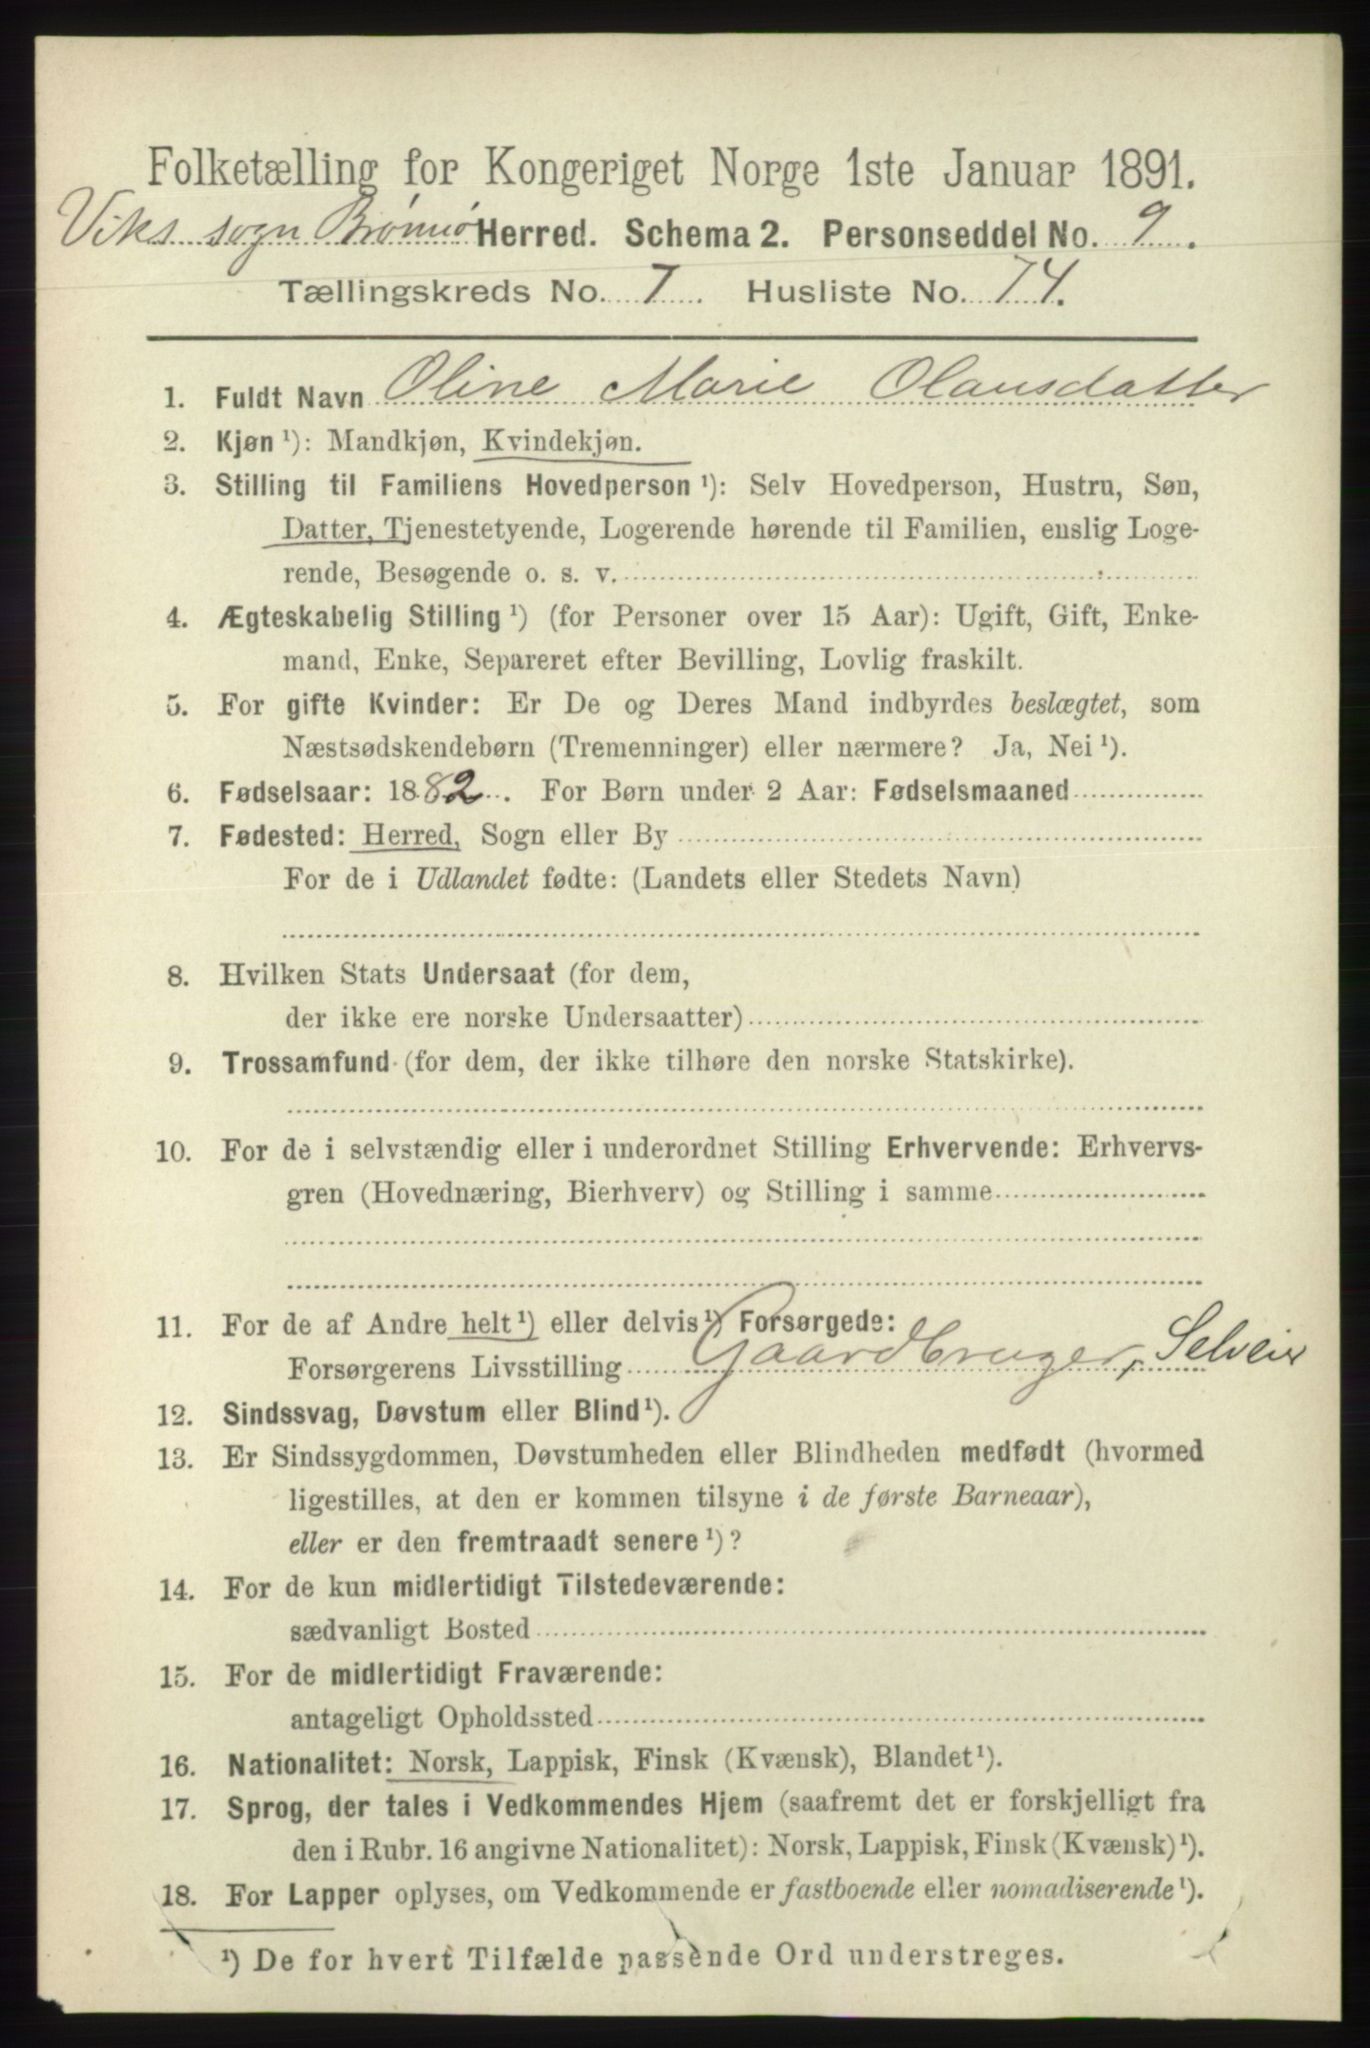 Folketælling for Kongeriget Norge 1ste Januar 1891.
Viks sogn Brønnø Herred. Schema 2. Personseddel No. 9.
Tællingskreds No. 7. Husliste No. 74.
1. Fuldt Navn Oline Marie Olausdatter
2. Kjøn ¹): Mandkjøn, Kvindekjøn.
3. Stilling til Familiens Hovedperson ¹): Selv Hovedperson, Hustru, Søn,
Datter, Tjenestetyende, Logerende hørende til Familien, enslig Loge-
rende, Besøgende o. s. v.
4. Ægteskabelig Stilling ¹) (for Personer over 15 Aar): Ugift, Gift, Enke-
mand, Enke, Separeret efter Bevilling, Lovlig fraskilt.
5. For gifte Kvinder: Er De og Deres Mand indbyrdes beslægtet, som
Næstsødskendebørn (Tremenninger) eller nærmere? Ja, Nei ¹).
6. Fødselsaar: 1882. For Børn under 2 Aar: Fødselsmaaned
7. Fødested: Herred, Sogn eller By
For de i Udlandet fødte: (Landets eller Stedets Navn)
8. Hvilken Stats Undersaat (for dem,
der ikke ere norske Undersaatter)
9. Trossamfund (for dem, der ikke tilhøre den norske Statskirke).
10. For de i selvstændig eller i underordnet Stilling Erhvervende: Erhvervs-
gren (Hovednæring, Bierhverv) og Stilling i samme
11. For de af Andre helt ¹) eller delvis ¹) Forsørgede:
Forsørgerens Livsstilling Gaardbruger, Selveier
12. Sindssvag, Døvstum eller Blind ¹).
13. Er Sindssygdommen, Døvstumheden eller Blindheden medfødt (hvormed
ligestilles, at den er kommen tilsyne i de første Barneaar),
eller er den fremtraadt senere ¹)?
14. For de kun midlertidigt Tilstedeværende:
sædvanligt Bosted
15. For de midlertidigt Fraværende:
antageligt Opholdssted
16. Nationalitet: Norsk, Lappisk, Finsk (Kvænsk), Blandet ¹).
17. Sprog, der tales i Vedkommendes Hjem (saafremt det er forskjelligt fra
den i Rubr. 16 angivne Nationalitet): Norsk, Lappisk, Finsk (Kvænsk) ¹).
18. For Lapper oplyses, om Vedkommende er fastboende eller nomadiserende ¹).
¹) De for hvert Tilfælde passende Ord understreges.